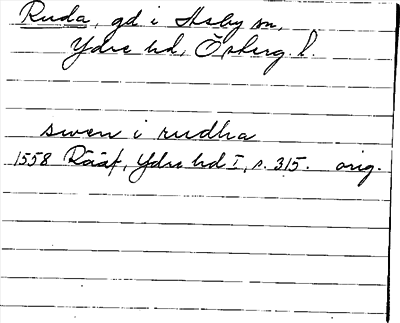 Ruda, gd i Asby sn,
Ydre hd, Österg. l.
swen i rudha
1558 Rääf, Ydre hd I, s. 315. orig.